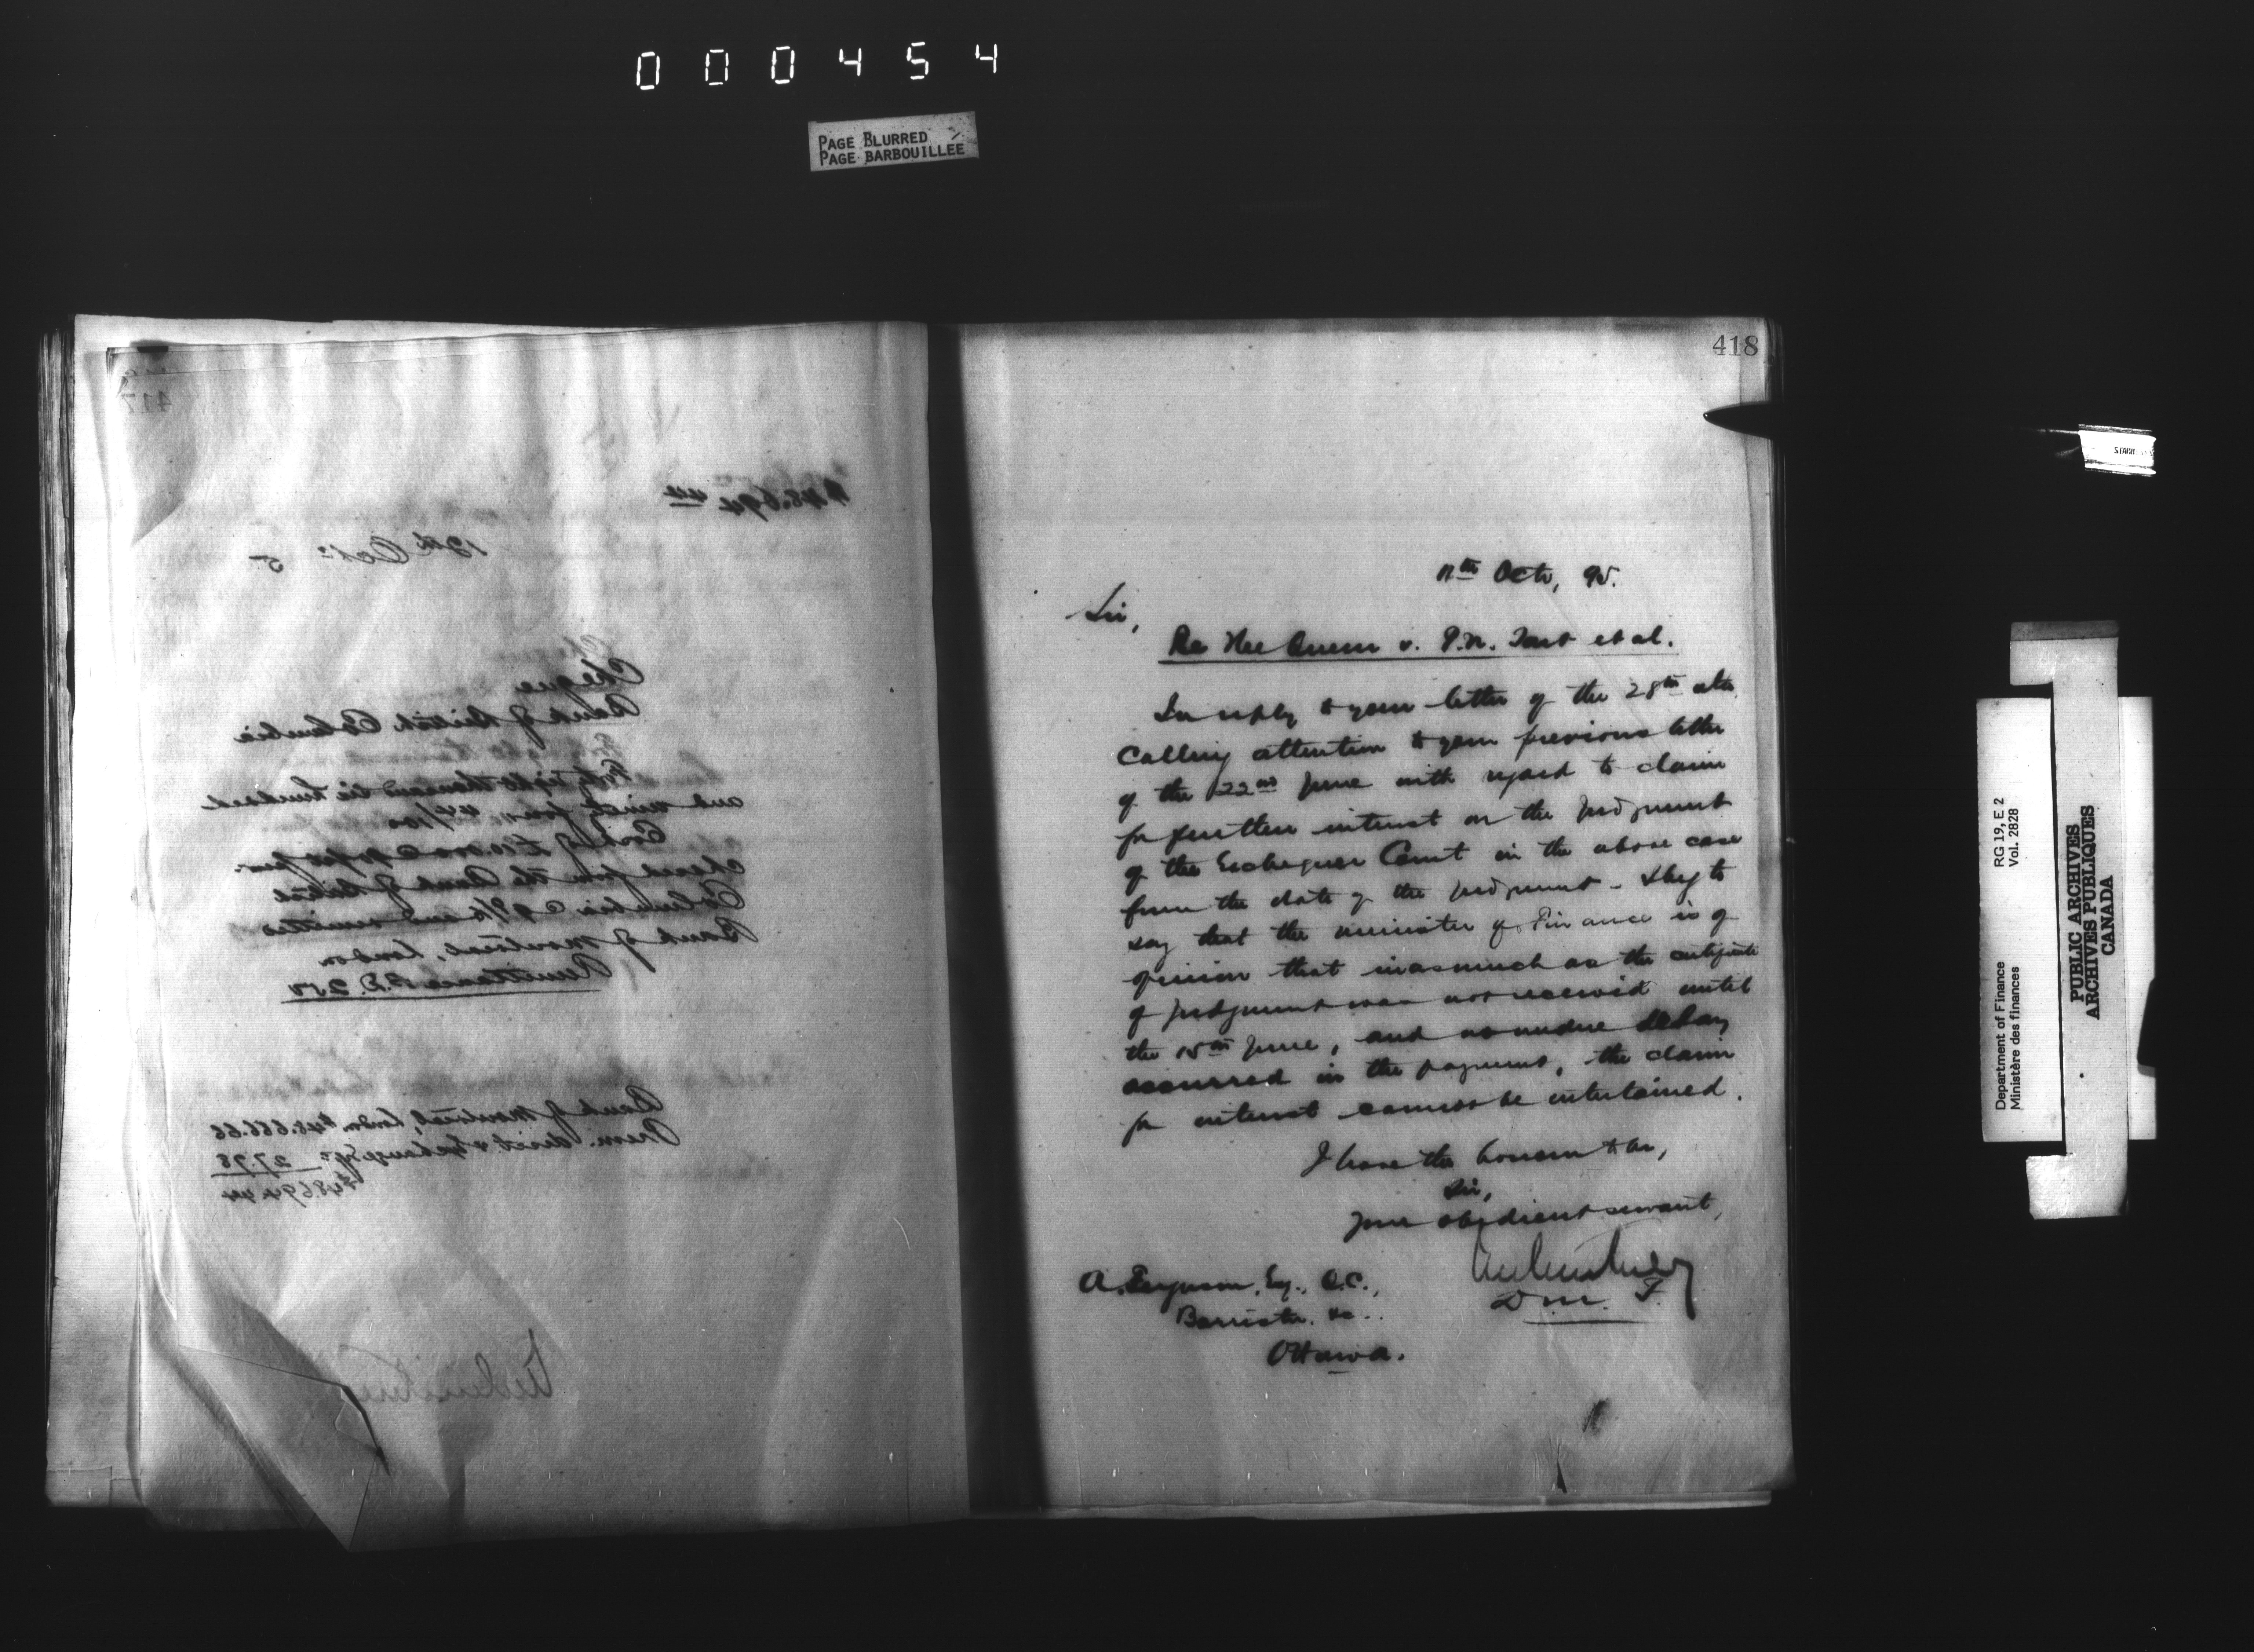 000454
PAGE BLURRED
PAGE BARBOUILLÉE
417
$48,694 44
12th Oct: 5
Cheque
Bank of British Columbia
Forty eight thousand six hundred
and ninety four, 44/100
£10,000
chased from the Bank of British
Columbia @ 9 7/16 and remitted
Bank of Montreal, London
Remittance
Bank of Montreal, London $48.666.66
Prem. 27.78
$48694.44
418
Oct, 95.
Sir,
Re The Queen v. P.N. et al.
In reply to your letter of the 28th ulto,
calling attention to your previous letter
of the 22nd June with regard to claim
for further interest on the judgment
of the Exchequer Court in the above case
from the date of the judgment - I beg to
say that the minister of Finance is of
opinion that inasmuch as the certificate
of judgment was not received until
the 15th June, and no undue delay
occurred in the payment, the claim
for interest cannot be entertained.
I have the honour to be,
Sir,
Your obedient servant,
D.M.F.
A. Ferguson, Esq., Q.C.,
Barrister, &c..
Ottawa.
Department of Finance RG 19, E 2
Ministère des finances Vol. 2828
PUBLIC ARCHIVES
ARCHIVES PUBLIQUES
CANADA